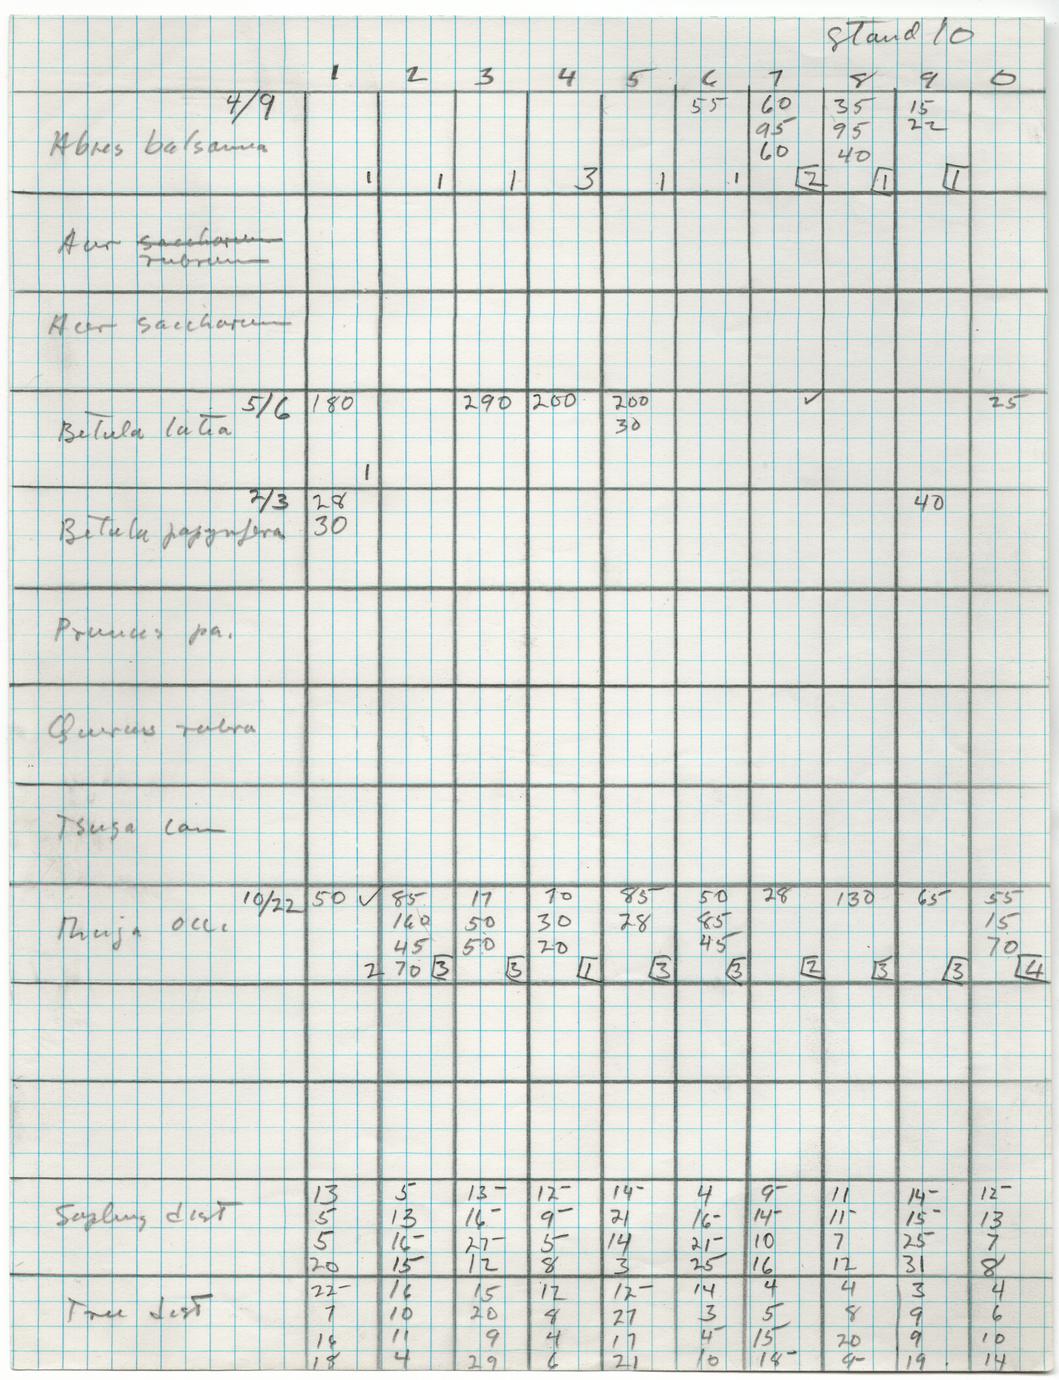 Stand 10
1 2 3 4 5 6 7 8 9 0
4/9 55 60 35 15
95 95 22
Abies balsamea
60 40
1 1 1 3 1 1 2 1 1
Acer saccharum
rubrum
Acer saccharum
5/6 180 290 200 200 ✓ 25
Betula lutea 30
1
2/3 28 40
Betula papyrifera 30
Prunus pa.
Quercus rubra
Tsuga can
10/22 50 ✓ 85 17 70 85 50 28 130 65 55
Thuja occi 160 50 30 28 85 15
45 50 20 45 70
2 70 3 3 1 3 3 2 3 3 4
13 5 13 12 14 4 9 11 14 12
Sapling dist 5 13 16 9 21 16 14 11 15 13
5 16 27 5 14 21 10 7 25 7
20 15 12 8 3 25 16 12 31 8
22 16 15 12 12 14 4 4 3 4
Tree dist 7 10 20 8 27 3 5 8 9 6
16 11 9 4 17 4 15 20 9 10
18 4 29 6 21 10 18 9 19 14